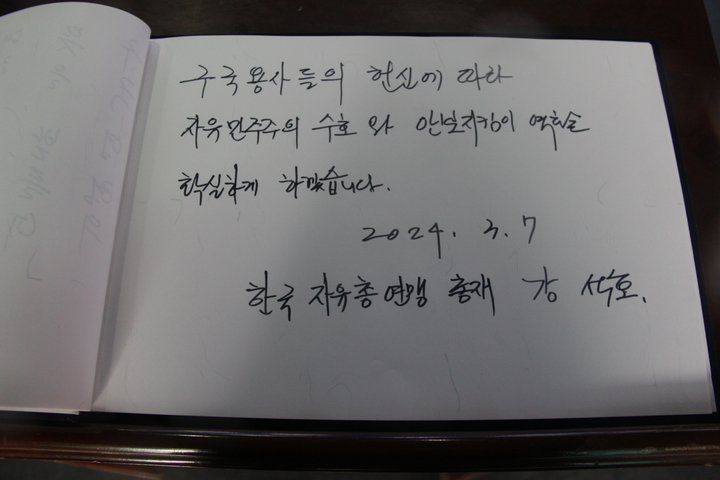 구국용사들의 헌신에 따라
자유민주주의 수호와 안보지킴이 역할을
확실하게 하겠습니다.
2024. 3. 7
한국자유총연맹 총재 강석호.